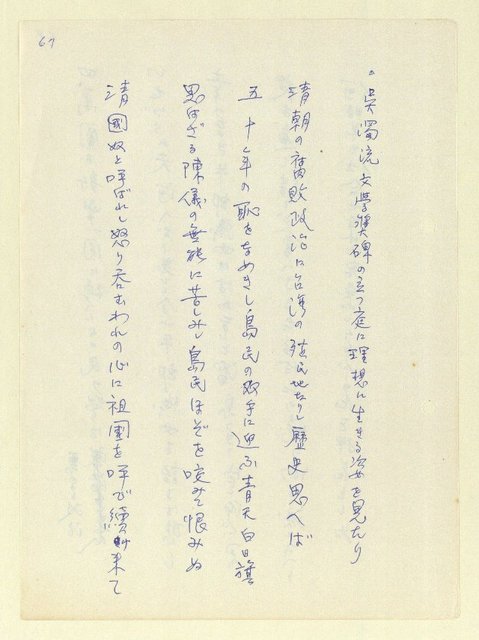 67
。呉濁流文学奨碑の立つ庭に理想に生きる姿を見たり
清朝の腐敗政治に台湾の殖民地たりし歴史思へば
五十年の恥をなめきし島民の双手に迎ふ青天白日旗
思はざる陳儀の無能に苦しみし島民ほぞを咬みて恨みぬ
清國奴と呼ばれし怒り呑むわれの心に祖國を呼び續け来て